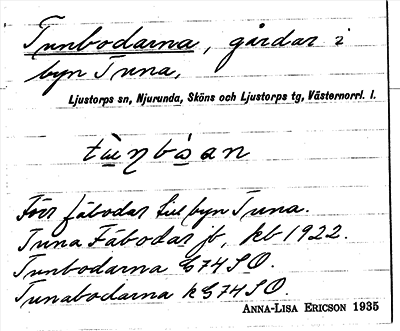 Tunbodarna, gårdar i
byn Tuna.
Ljustorps sn, Njurunda, Sköns och Ljustorps tg, Västernorrl. l.
Förr fäbodar till byn Tuna.
Tuna Fäbodar jb, kb 1922.
Tunbodarna G74SO.
Tunabodarna k G74SO.
ANNA-LISA ERICSON 1935